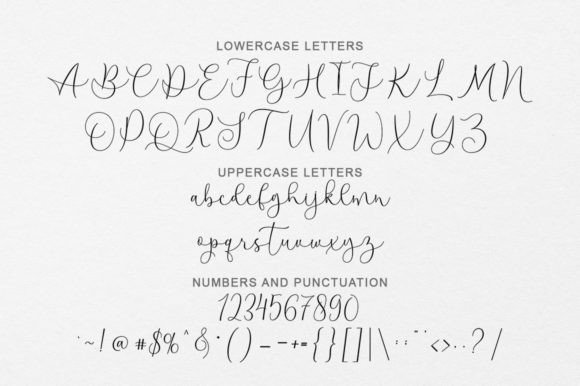 LOWERCASE LETTERS
ABCDEFGHIJKLMN
OPQRSTUVWXYZ
UPPERCASE LETTERS
abcdefghijklmn
opqrstuvwxyz
NUMBERS AND PUNCTUATION
1234567890
~!@#$%^&*()_-+={}[]|\:;"'<>,.?/